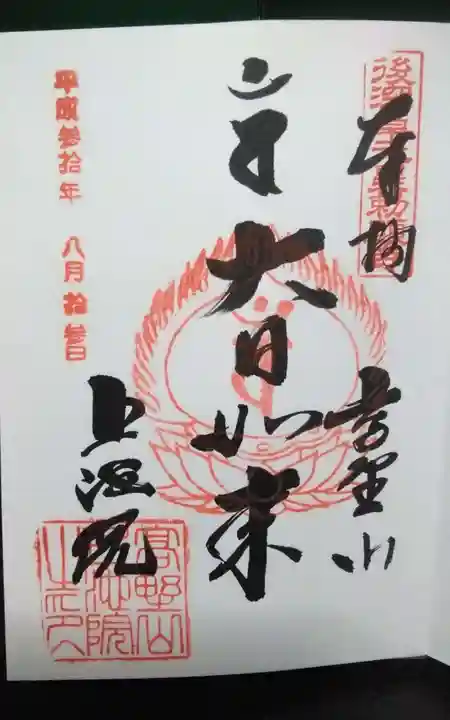 奉拝
高野山
大日如来
上池院
平成参拾年 八月拾参日
高野山
上池院
之印